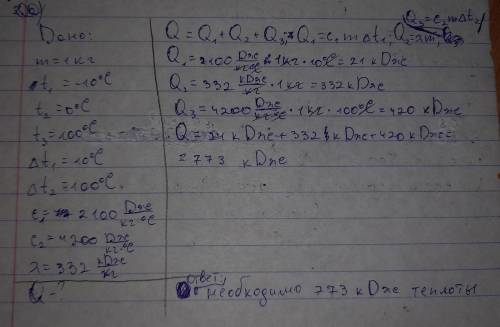 Дано:
m = 1 кг
t₁ = -10°C
t₂ = 0°C
t₃ = 100°C
Δt₁ = 10°C
Δt₂ = 100°C
c₁ = 2100 Дж/кг·°C
c₂ = 4200 Дж/кг·°C
λ = 332 кДж/кг
Q - ?
Q₃ = c₂mΔt₂
Q = Q₁ + Q₂ + Q₃; Q₁ = c₁mΔt₁; Q₂ = λm;
Q₁ = 2100 Дж/кг·°C · 1 кг · 10°C = 21 кДж
Q₂ = 332 кДж/кг · 1 кг = 332 кДж
Q₃ = 4200 Дж/кг·°C · 1 кг · 100°C = 420 кДж
Q = 21 кДж + 332 кДж + 420 кДж =
= 773 кДж
Ответ:
необходимо 773 кДж теплоты